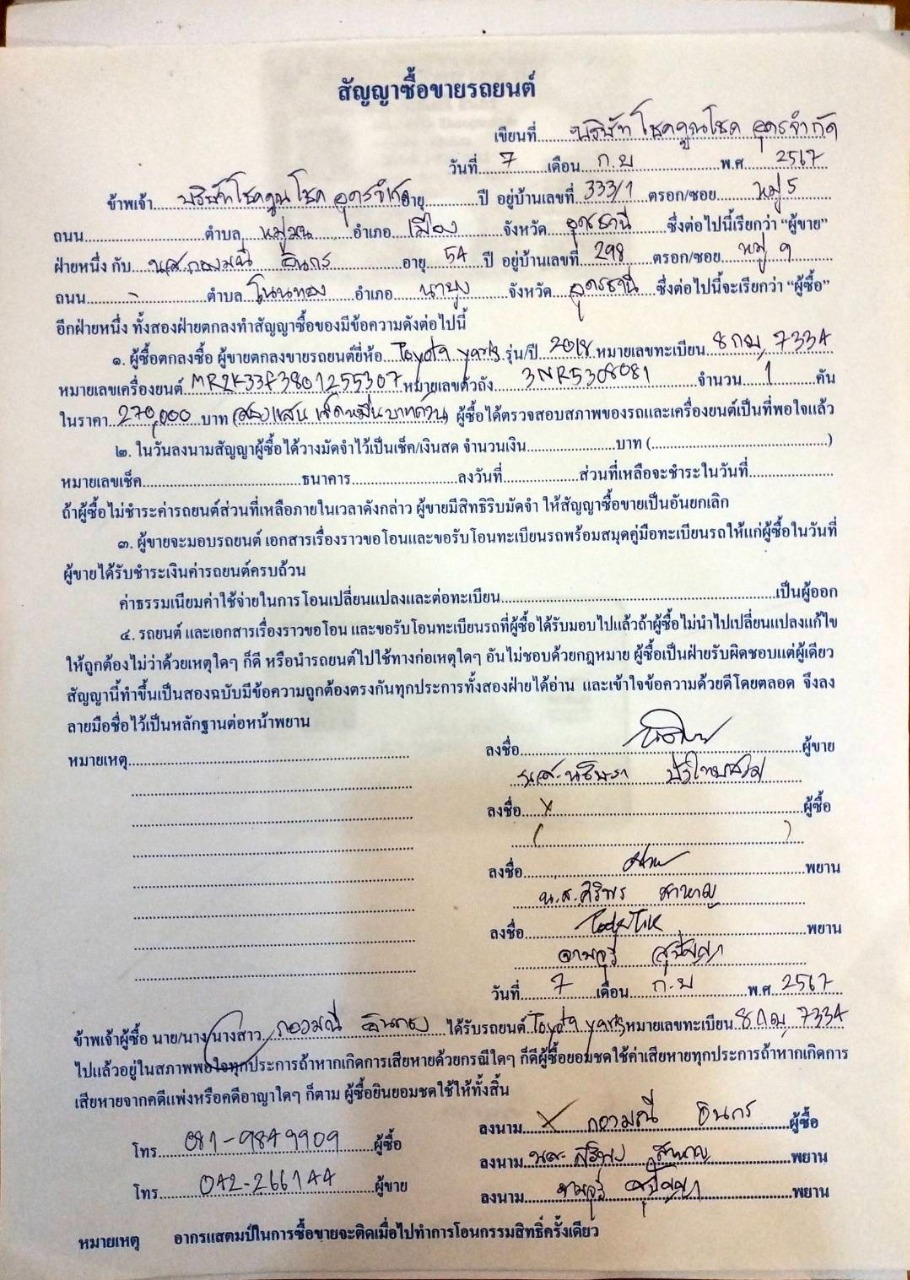 สัญญาซื้อขายรถยนต์
เขียนที่ บริษัท โชคคูณโชค อุดรจำกัด
วันที่ 7 เดือน ก.ย พ.ศ 2567
ข้าพเจ้า บริษัทโชคคูณโชค อุดรจำกัด อายุ........ปี อยู่บ้านเลขที่ 333/1 ตรอก/ซอย หมู่ 5
ถนน........ตำบล หมู่ม่น อำเภอ เมือง จังหวัด อุดรธานี ซึ่งต่อไปนี้เรียกว่า “ผู้ขาย”
ฝ่ายหนึ่ง กับ น.ส.กองมณี อินกร อายุ 54 ปี อยู่บ้านเลขที่ 298 ตรอก/ซอย หมู่ 9
ถนน - ตำบล โนนทอง อำเภอ นายูง จังหวัด อุดรธานี ซึ่งต่อไปนี้จะเรียกว่า “ผู้ซื้อ”
อีกฝ่ายหนึ่ง ทั้งสองฝ่ายตกลงทำสัญญาซื้อของมีข้อความดังต่อไปนี้
๑. ผู้ซื้อตกลงซื้อ ผู้ขายตกลงขายรถยนต์ยี่ห้อ Toyota yaris รุ่น/ปี 2018 หมายเลขทะเบียน 8กฌ 7334
หมายเลขเครื่องยนต์ MR2K33F3801255307 หมายเลขตัวถัง 3NR5308081 จำนวน 1 คัน
ในราคา 270,000 บาท (สองแสนเจ็ดหมื่นบาทถ้วน) ผู้ซื้อได้ตรวจสอบสภาพของรถและเครื่องยนต์เป็นที่พอใจแล้ว
๒. ในวันลงนามสัญญาผู้ซื้อได้วางมัดจำไว้เป็นเช็ค/เงินสด จำนวนเงิน........บาท (........)
หมายเลขเช็ค........ธนาคาร........ลงวันที่........ส่วนที่เหลือจะชำระในวันที่........
ถ้าผู้ซื้อไม่ชำระค่ารถยนต์ส่วนที่เหลือภายในเวลาดังกล่าว ผู้ขายมีสิทธิริบมัดจำ ให้สัญญาซื้อขายเป็นอันยกเลิก
๓. ผู้ขายจะมอบรถยนต์ เอกสารเรื่องราวขอโอนและขอรับโอนทะเบียนรถพร้อมสมุดคู่มือทะเบียนรถให้แก่ผู้ซื้อในวันที่
ผู้ขายได้รับชำระเงินค่ารถยนต์ครบถ้วน
ค่าธรรมเนียมค่าใช้จ่ายในการโอนเปลี่ยนแปลงและต่อทะเบียน........เป็นผู้ออก
๔. รถยนต์ และเอกสารเรื่องราวขอโอน และขอรับโอนทะเบียนรถที่ผู้ซื้อได้รับมอบไปแล้วถ้าผู้ซื้อไม่นำไปเปลี่ยนแปลงแก้ไข
ให้ถูกต้องไม่ว่าด้วยเหตุใดๆ ก็ดี หรือนำรถยนต์ไปใช้ทางก่อเหตุใดๆ อันไม่ชอบด้วยกฎหมาย ผู้ซื้อเป็นฝ่ายรับผิดชอบแต่ผู้เดียว
สัญญานี้ทำขึ้นเป็นสองฉบับมีข้อความถูกต้องตรงกันทุกประการทั้งสองฝ่ายได้อ่าน และเข้าใจข้อความด้วยดีโดยตลอด จึงลง
ลายมือชื่อไว้เป็นหลักฐานต่อหน้าพยาน
หมายเหตุ........ ลงชื่อ........ผู้ขาย
น.ส.
ลงชื่อ X ผู้ซื้อ
( )
ลงชื่อ........พยาน
น.ส.ศิริพร
ลงชื่อ........พยาน
วันที่ 7 เดือน ก.ย พ.ศ 2567
ข้าพเจ้าผู้ซื้อ นาย/นาง/นางสาว กองมณี อินกร ได้รับรถยนต์ Toyota yaris หมายเลขทะเบียน 8กฌ 7334
ไปแล้วอยู่ในสภาพพอใจทุกประการถ้าหากเกิดการเสียหายด้วยกรณีใดๆ ก็ดีผู้ซื้อยอมชดใช้ค่าเสียหายทุกประการถ้าหากเกิดการ
เสียหายจากคดีแพ่งหรือคดีอาญาใดๆ ก็ตาม ผู้ซื้อยินยอมชดใช้ให้ทั้งสิ้น
ลงนาม X กองมณี อินกร ผู้ซื้อ
โทร 081-9849909 ผู้ซื้อ
ลงนาม น.ส. ศิริพร พยาน
โทร 042-266144 ผู้ขาย
ลงนาม........พยาน
หมายเหตุ อากรแสตมป์ในการซื้อขายจะติดเมื่อไปทำการโอนกรรมสิทธิ์ครั้งเดียว